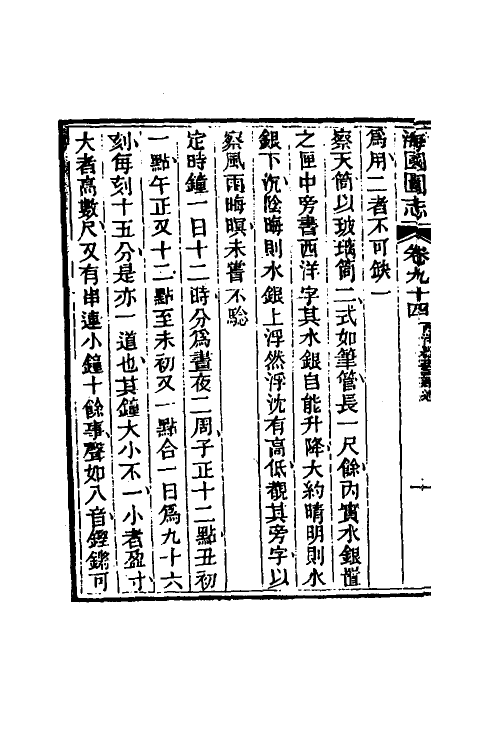 海國圖志 卷九十四 十
爲用二者不可缺一
察天筒以玻璃筒二式如筆管長一尺餘內實水銀
之匣中旁書西洋字其水銀自能升降大約晴明則水
銀下沉陰晦則水銀上浮然浮沈有高低觀其旁字以
察風雨晦暝未嘗不驗
定時鐘一日十二時分爲晝夜二周子正十二點丑初
一點午正又十二點至未初又一點合一日爲九十六
刻每刻十五分是亦一道也其鐘大小不一小者盈寸
大者高數尺又有串連小鐘十餘事聲如八音鏗鏘可